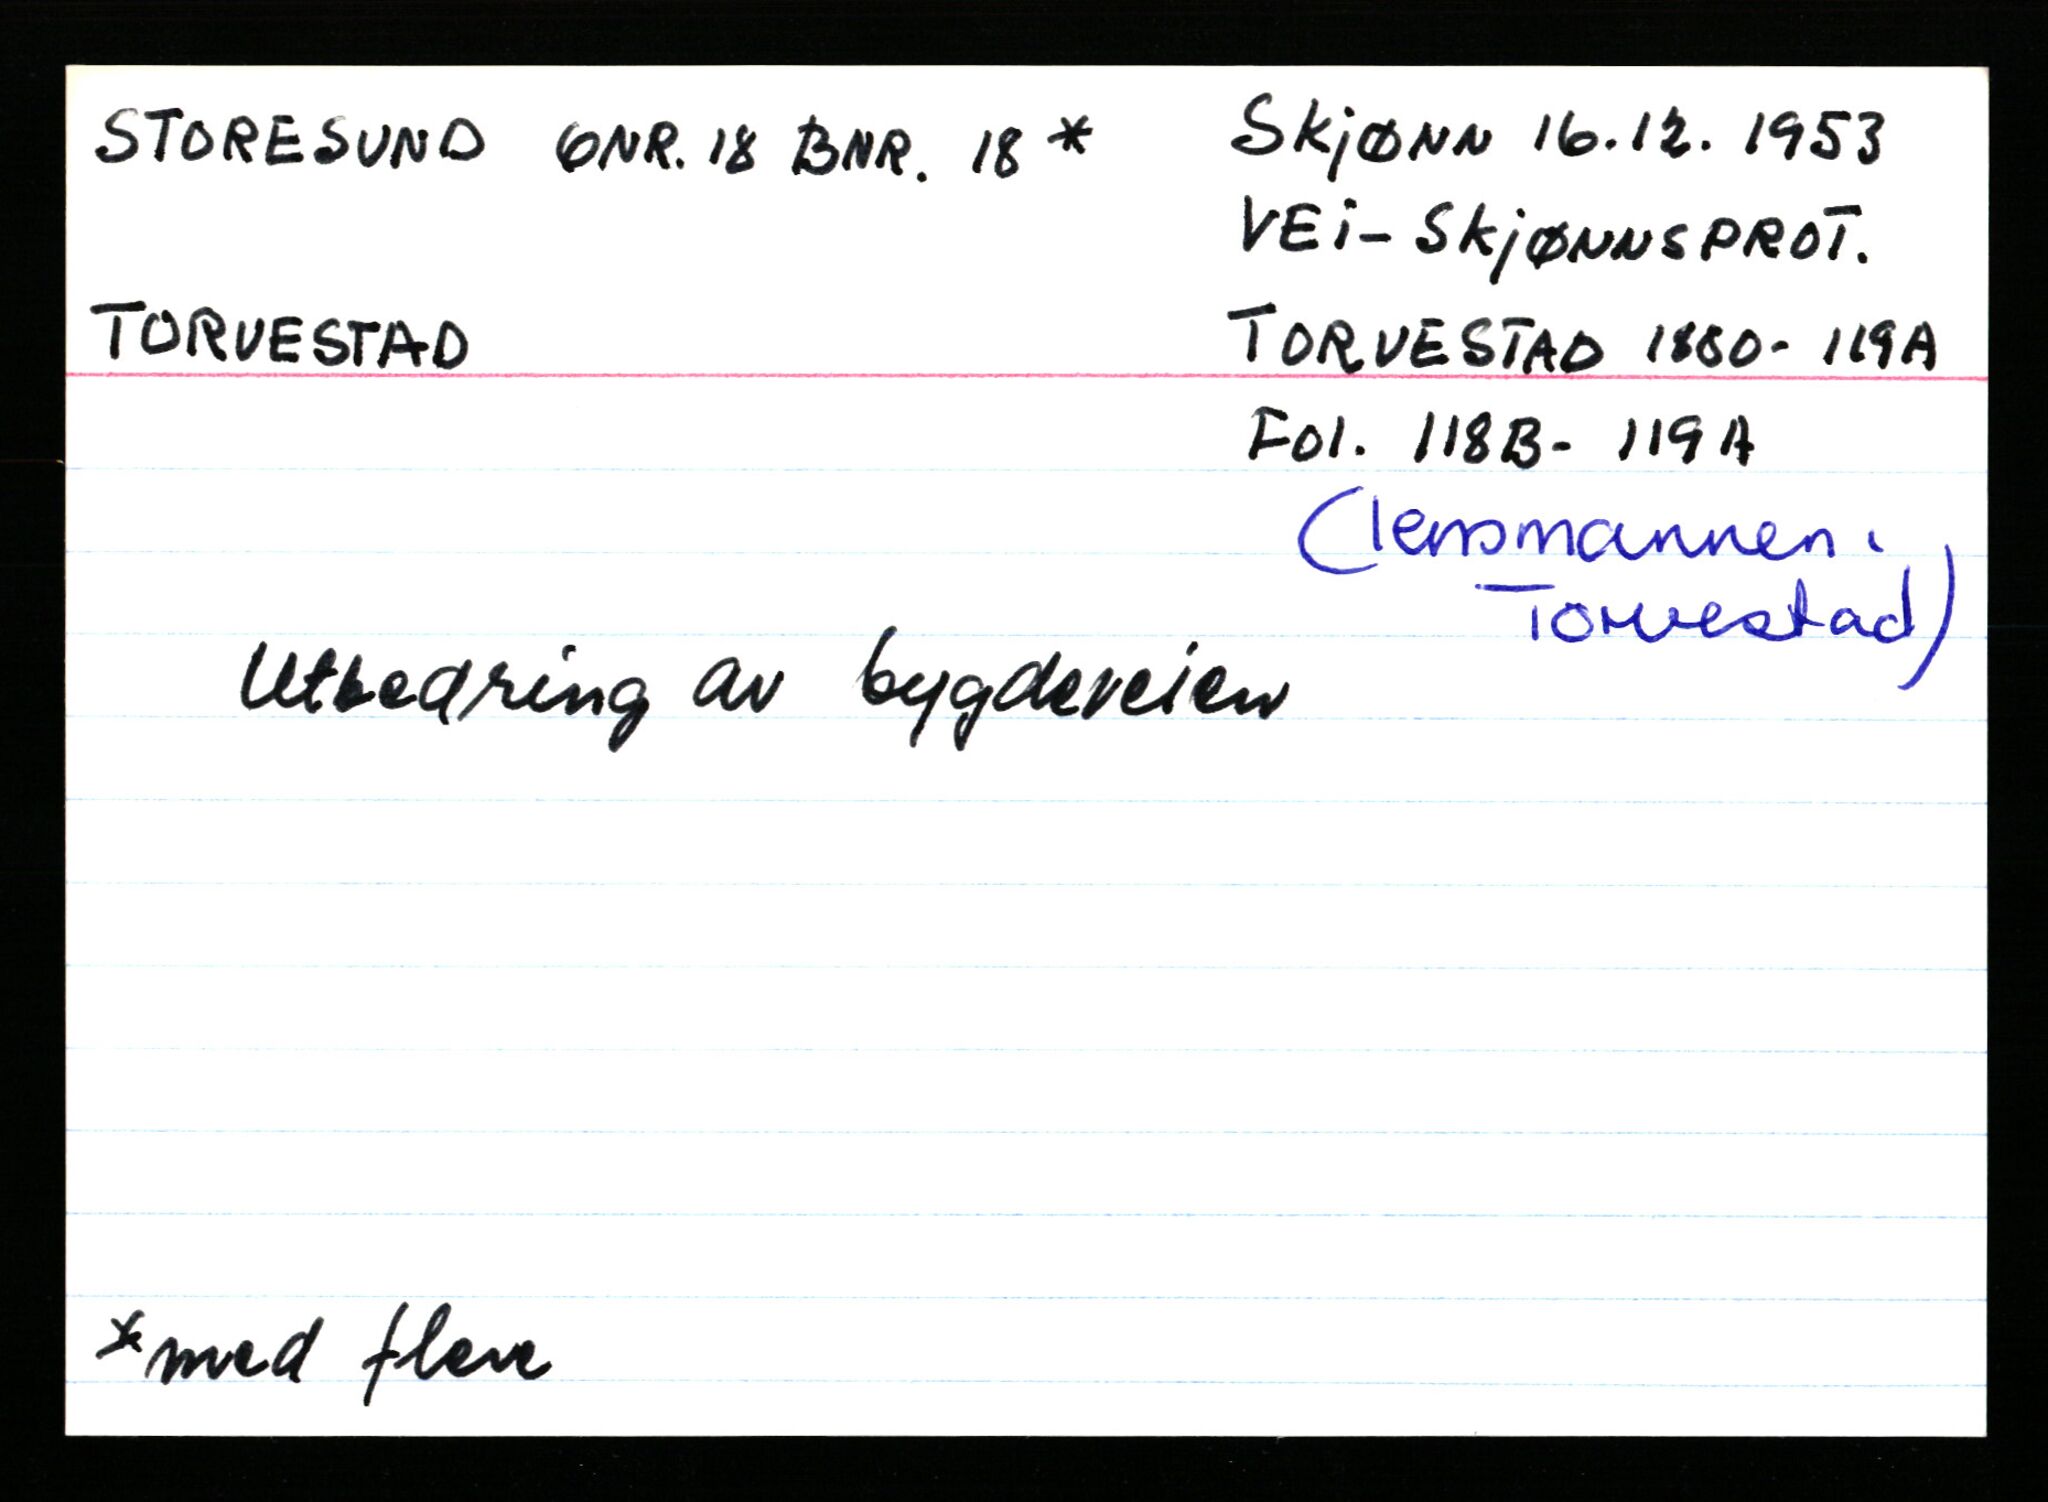 STORESUND GNR. 18 BNR. 18 *
SkjØNN 16.12. 1953
VEi- SkjØNNSPROT.
TORVESTAD
TORVESTAD 1880- 119A
Fol. 118B- 119A
(lensmannen i
Torvestad)
Utbedring av bygdeveien
*med flere